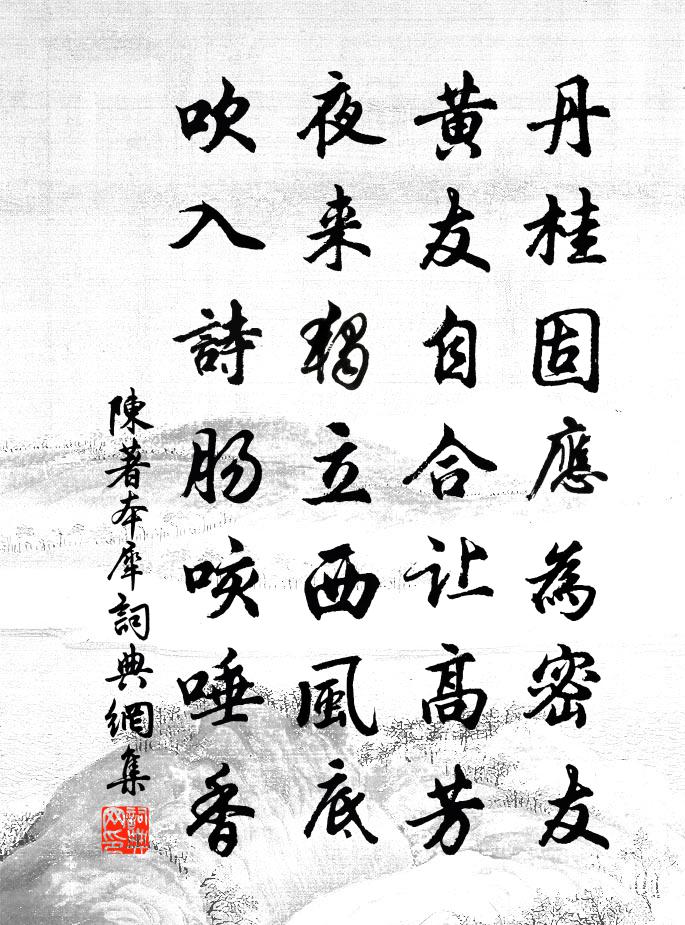 丹桂固應為密友
黃友自合让高芳
夜来獨立西風底
吹入詩腸咳唾香
陳著本犀詞典網集